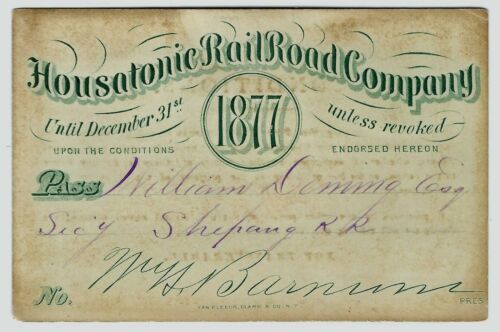 Housatonic RailRoad Company
Until December 31st 1877 unless revoked
UPON THE CONDITIONS ENDORSED HEREON
Pass William Deming Esq
Secy Shepaug R.R.
No. Wm H. Barnum
PRES
VAN KLEECK, CLARK & CO. N.Y.